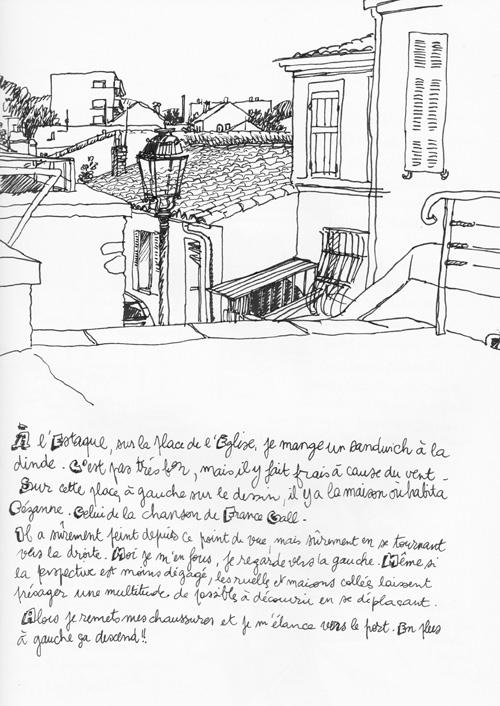 À l'Estaque, sur la place de l'Eglise, je mange un sandwich à la
dinde. C'est pas très bon, mais il y fait frais à cause du vent.
Sur cette place, à gauche sur le dessin, il y a la maison où habita
Cézanne. Celui de la chanson de France Gall.
Il a sûrement peint depuis ce point de vue, mais sûrement en se tournant
vers la droite. Moi je m'en fous, je regarde vers la gauche. Même si
la perspective est moins dégagé, les ruelles et maisons collés laissent
présager une multitude de possible à découvrir en se déplaçant.
Alors je remets mes chaussures et je m'élance vers le port. En plus
à gauche ça descend!!